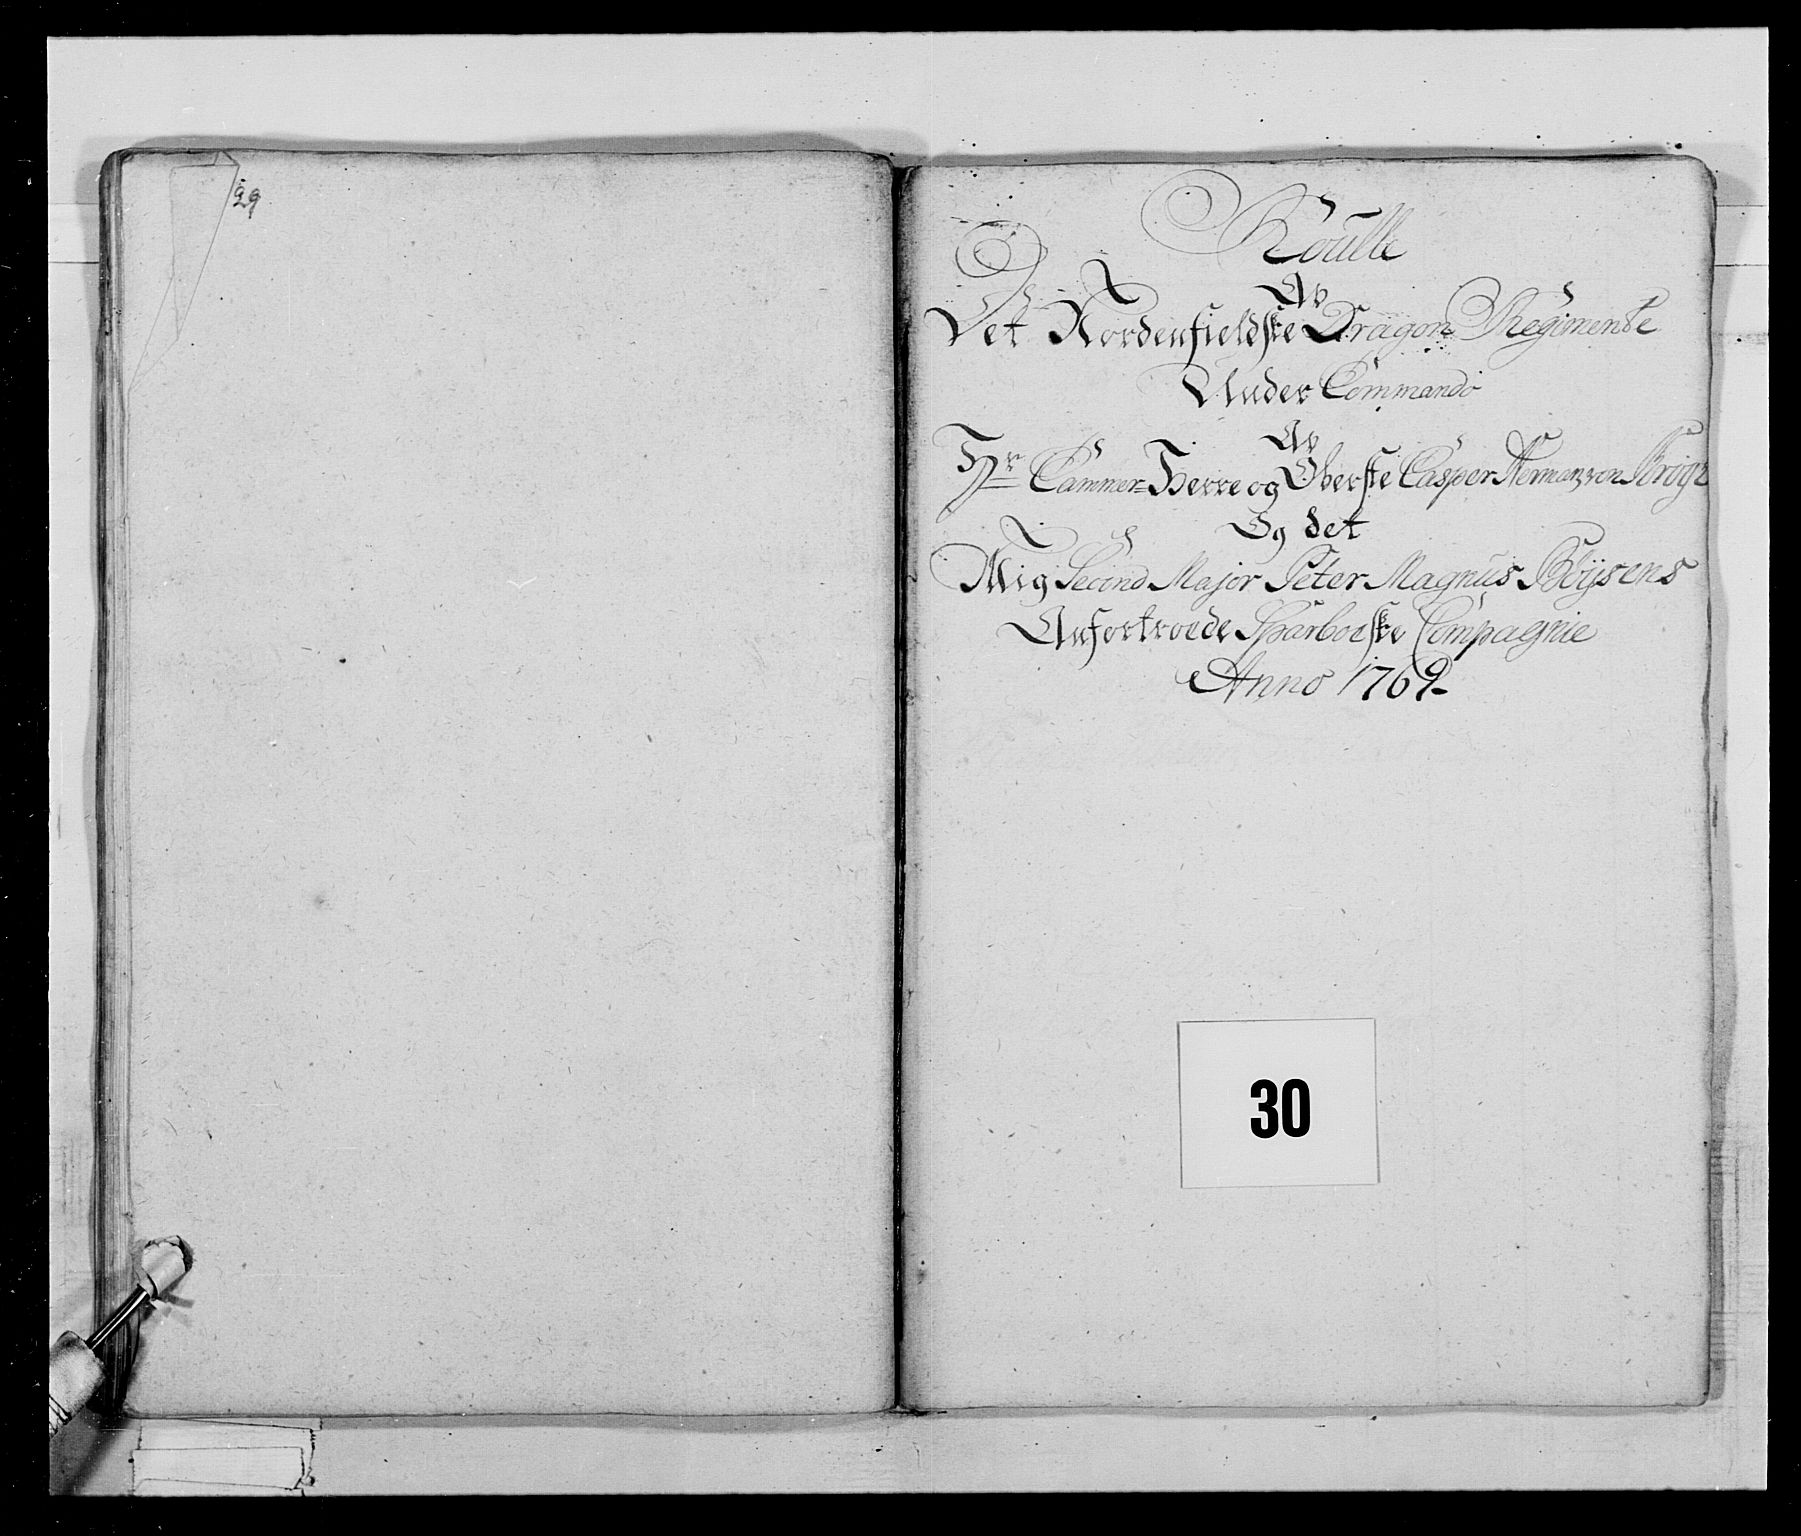 29
Roulle
Av
Det Nordenfieldske Dragon Regimente
Under Commando
Av
Hr Cammer=Herre og Oberste Casper Herman von
Og det
Mig Second Major Peter Magnus Böysens
Anfortroede Sparboeske Compagnie
Anno 1769-
30